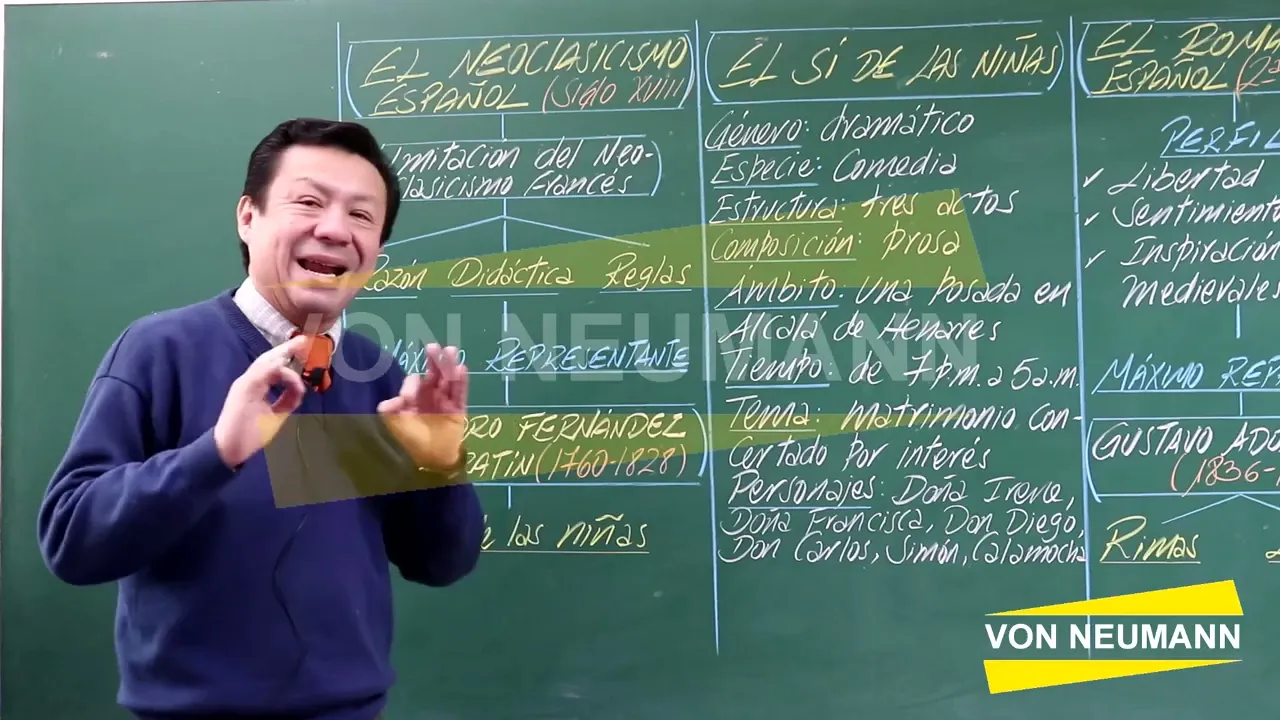 EL NEOCLASICISMO
ESPAÑOL (Siglo XVIII)
Imitación del Neo-
clasicismo Francés
Razón Didáctica Reglas
MÁXIMO REPRESENTANTE
DRO FERNÁNDEZ
RATÍN (1760-1828)
de las niñas
EL SÍ DE LAS NIÑAS
Género: dramático
Especie: Comedia
Estructura: tres actos
Composición: prosa
Ámbito: una posada en
Alcalá de Henares
Tiempo: de 7 p.m. a 5 a.m.
Tema: matrimonio con-
certado por interés
Personajes: Doña Irene,
Doña Francisca, Don Diego,
Don Carlos, Simón, Calamocha
EL ROMA
ESPAÑOL (2ª
PERFIL
✓ Libertad
✓ Sentimiento
✓ Inspiración
Medievales
MÁXIMO REP
GUSTAVO ADO
(1836-1
Rimas
VON NEUMANN
VON NEUMANN